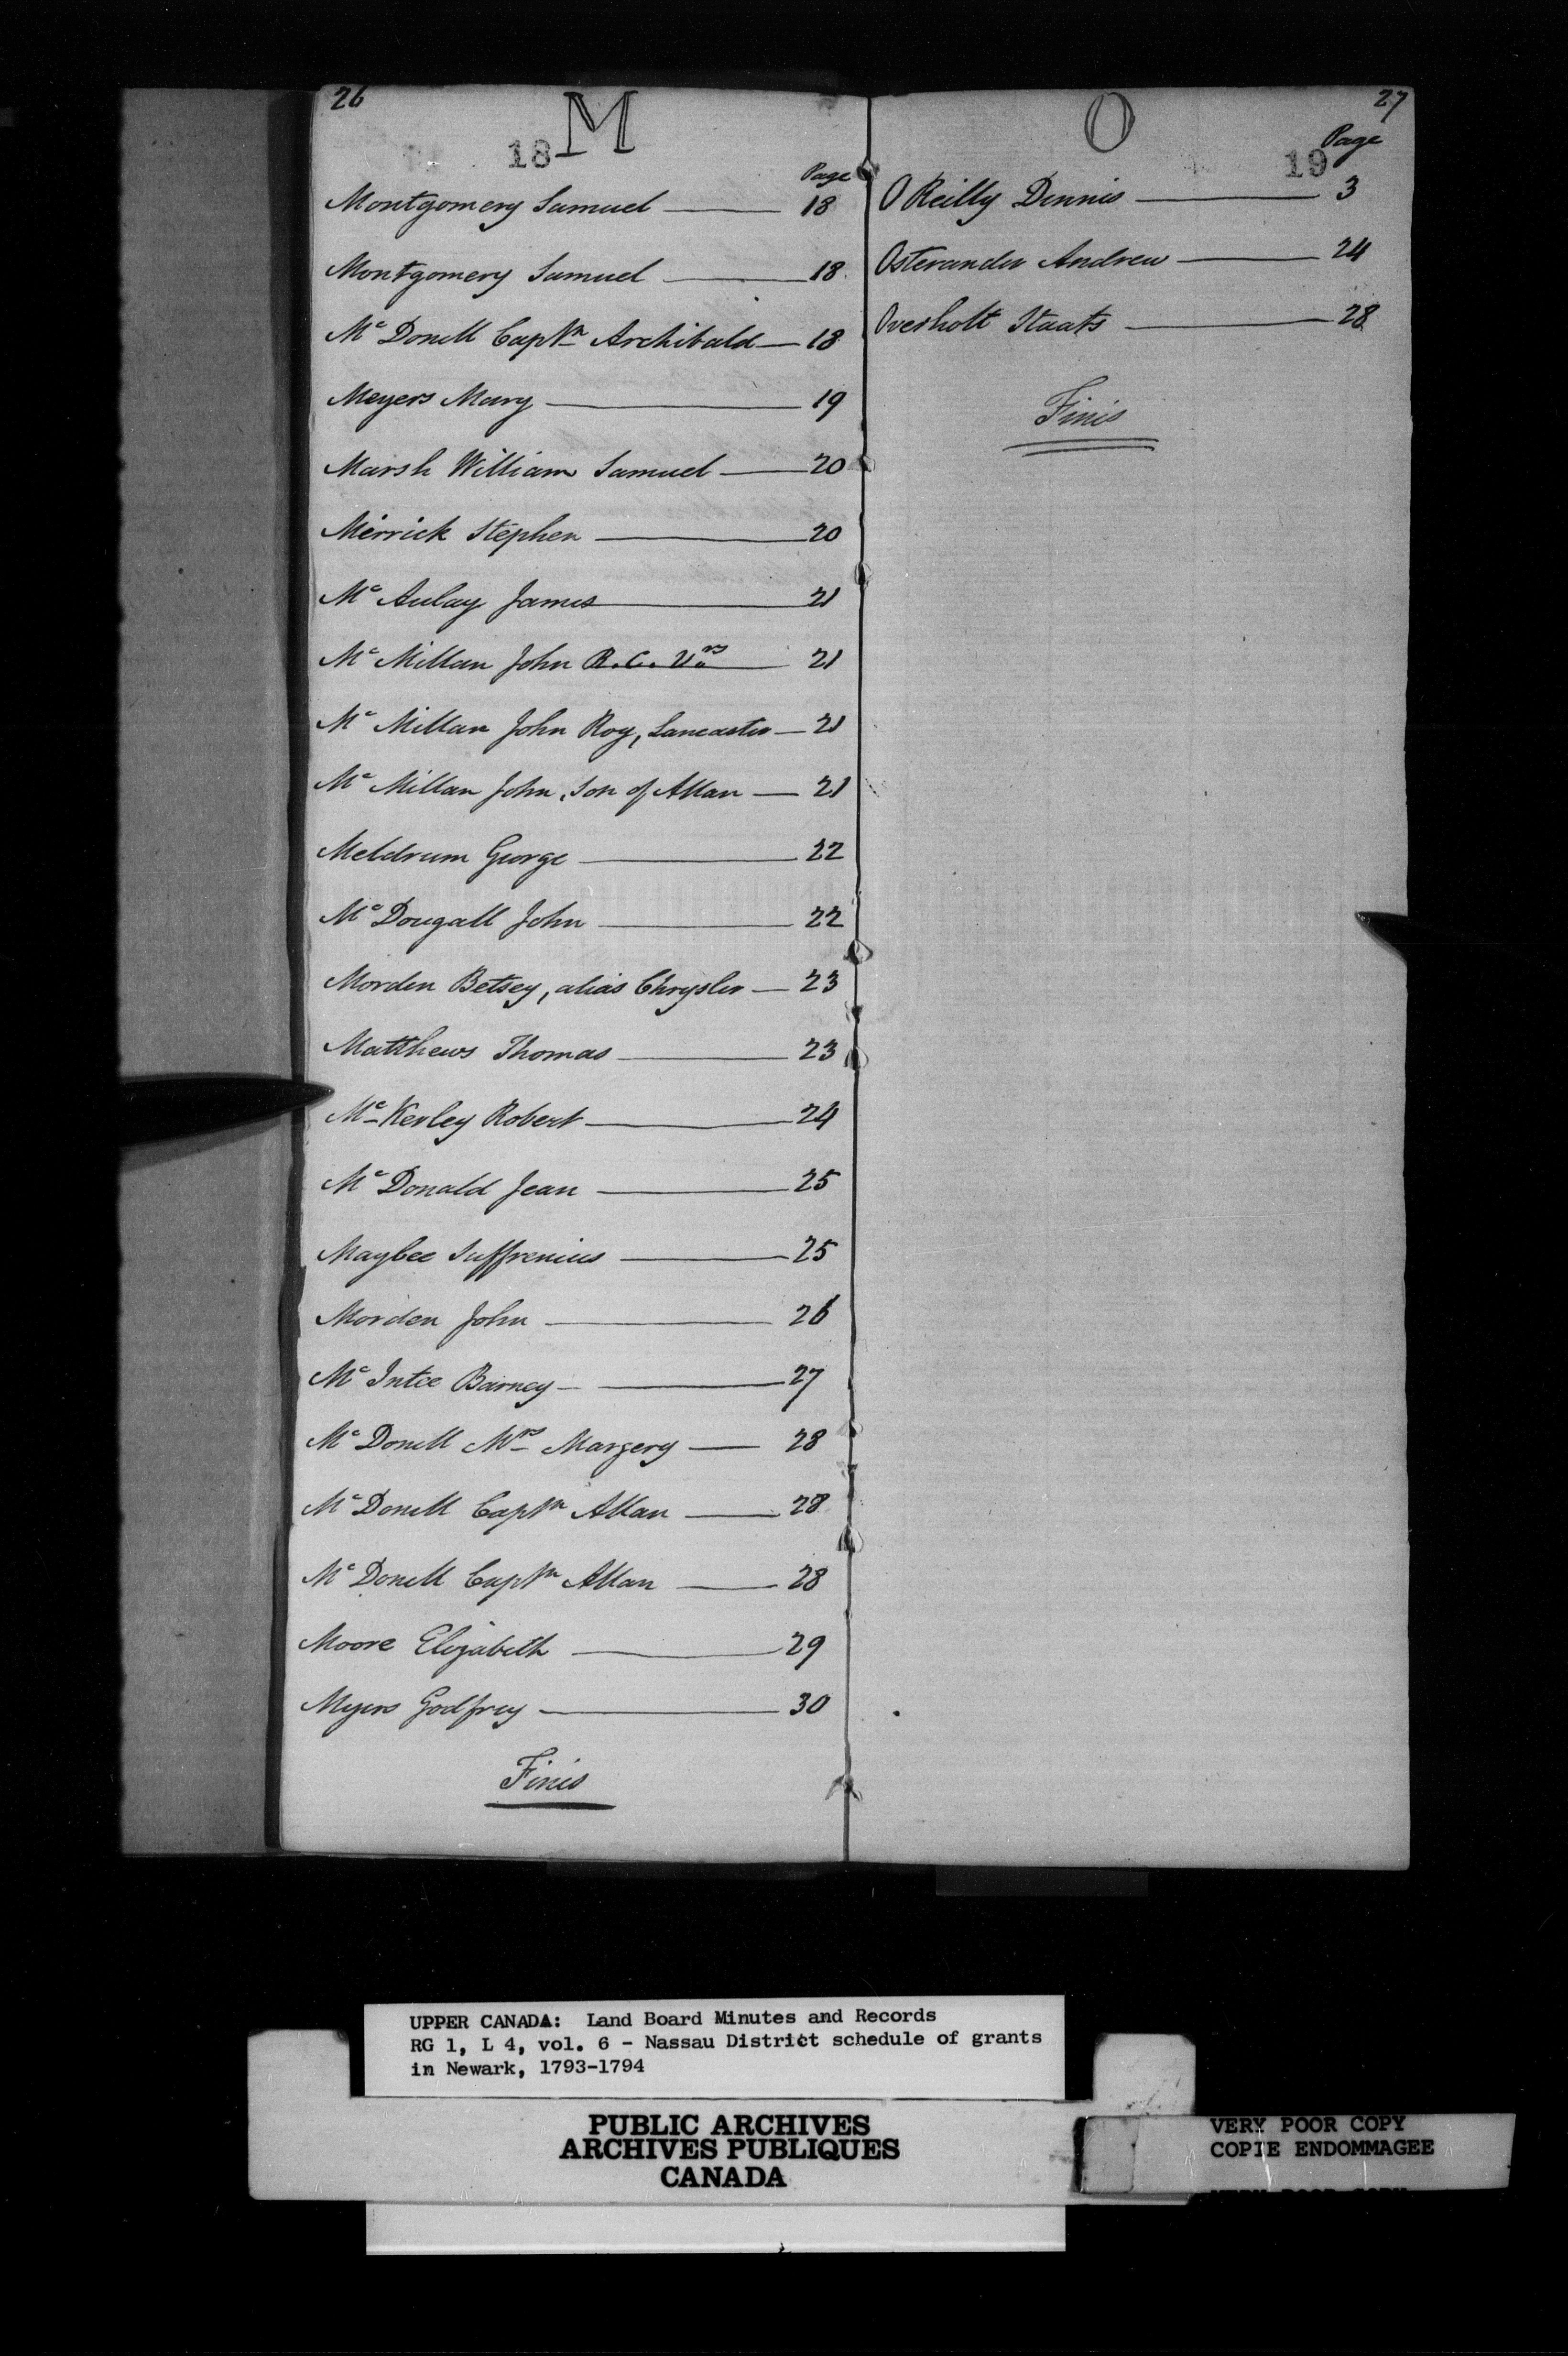 26
M
18
Page
Montgomery Samuel — 18
Montgomery Samuel — 18
Mc Donell Captn Archibald — 18
Meyers Mary — 19
Marsh William Samuel — 20
Merrick Stephen — 20
Mc Aulay James — 21
Mc Millan John R. C. Vrs — 21
Mc Millan John Roy, Lancaster — 21
Mc Millan John, Son of Allan — 21
Meldrum George — 22
Mc Dougall John — 22
Morden Betsey, alias Chrysler — 23
Matthews Thomas — 23
Mc Kerley Robert — 24
Mc Donald Jean — 25
Maybee Suffrenius — 25
Morden John — 26
Mc Intee Barney — 27
Mc Donell Mrs Margery — 28
Mc Donell Captn Allan — 28
Mc Donell Captn Allan — 28
Moore Elizabeth — 29
Myers Godfrey — 30
Finis
27
O
Page
19
O Reilly Dennis — 3
Osterander Andrew — 24
Overholt Staats — 28
Finis
UPPER CANADA: Land Board Minutes and Records
RG 1, L 4, vol. 6 - Nassau District schedule of grants
in Newark, 1793-1794
PUBLIC ARCHIVES
ARCHIVES PUBLIQUES
CANADA
VERY POOR COPY
COPIE ENDOMMAGEE
VERY POOR COPY